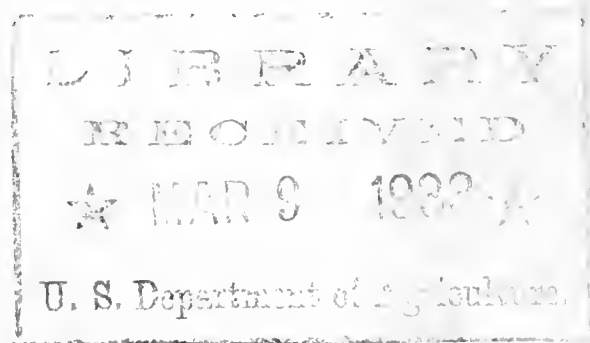 LIBRARY
RECEIVED
★ MAR 9 ★
U. S. Department of Agriculture.